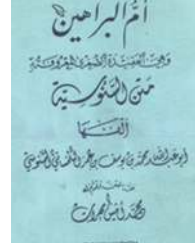 أم البراهين
وهي العقيدة الصغرى المعروفة
متن السنوسية
ألفها
أبو عبد الله محمد بن يوسف بن عمر السنوسي
محمد أمين